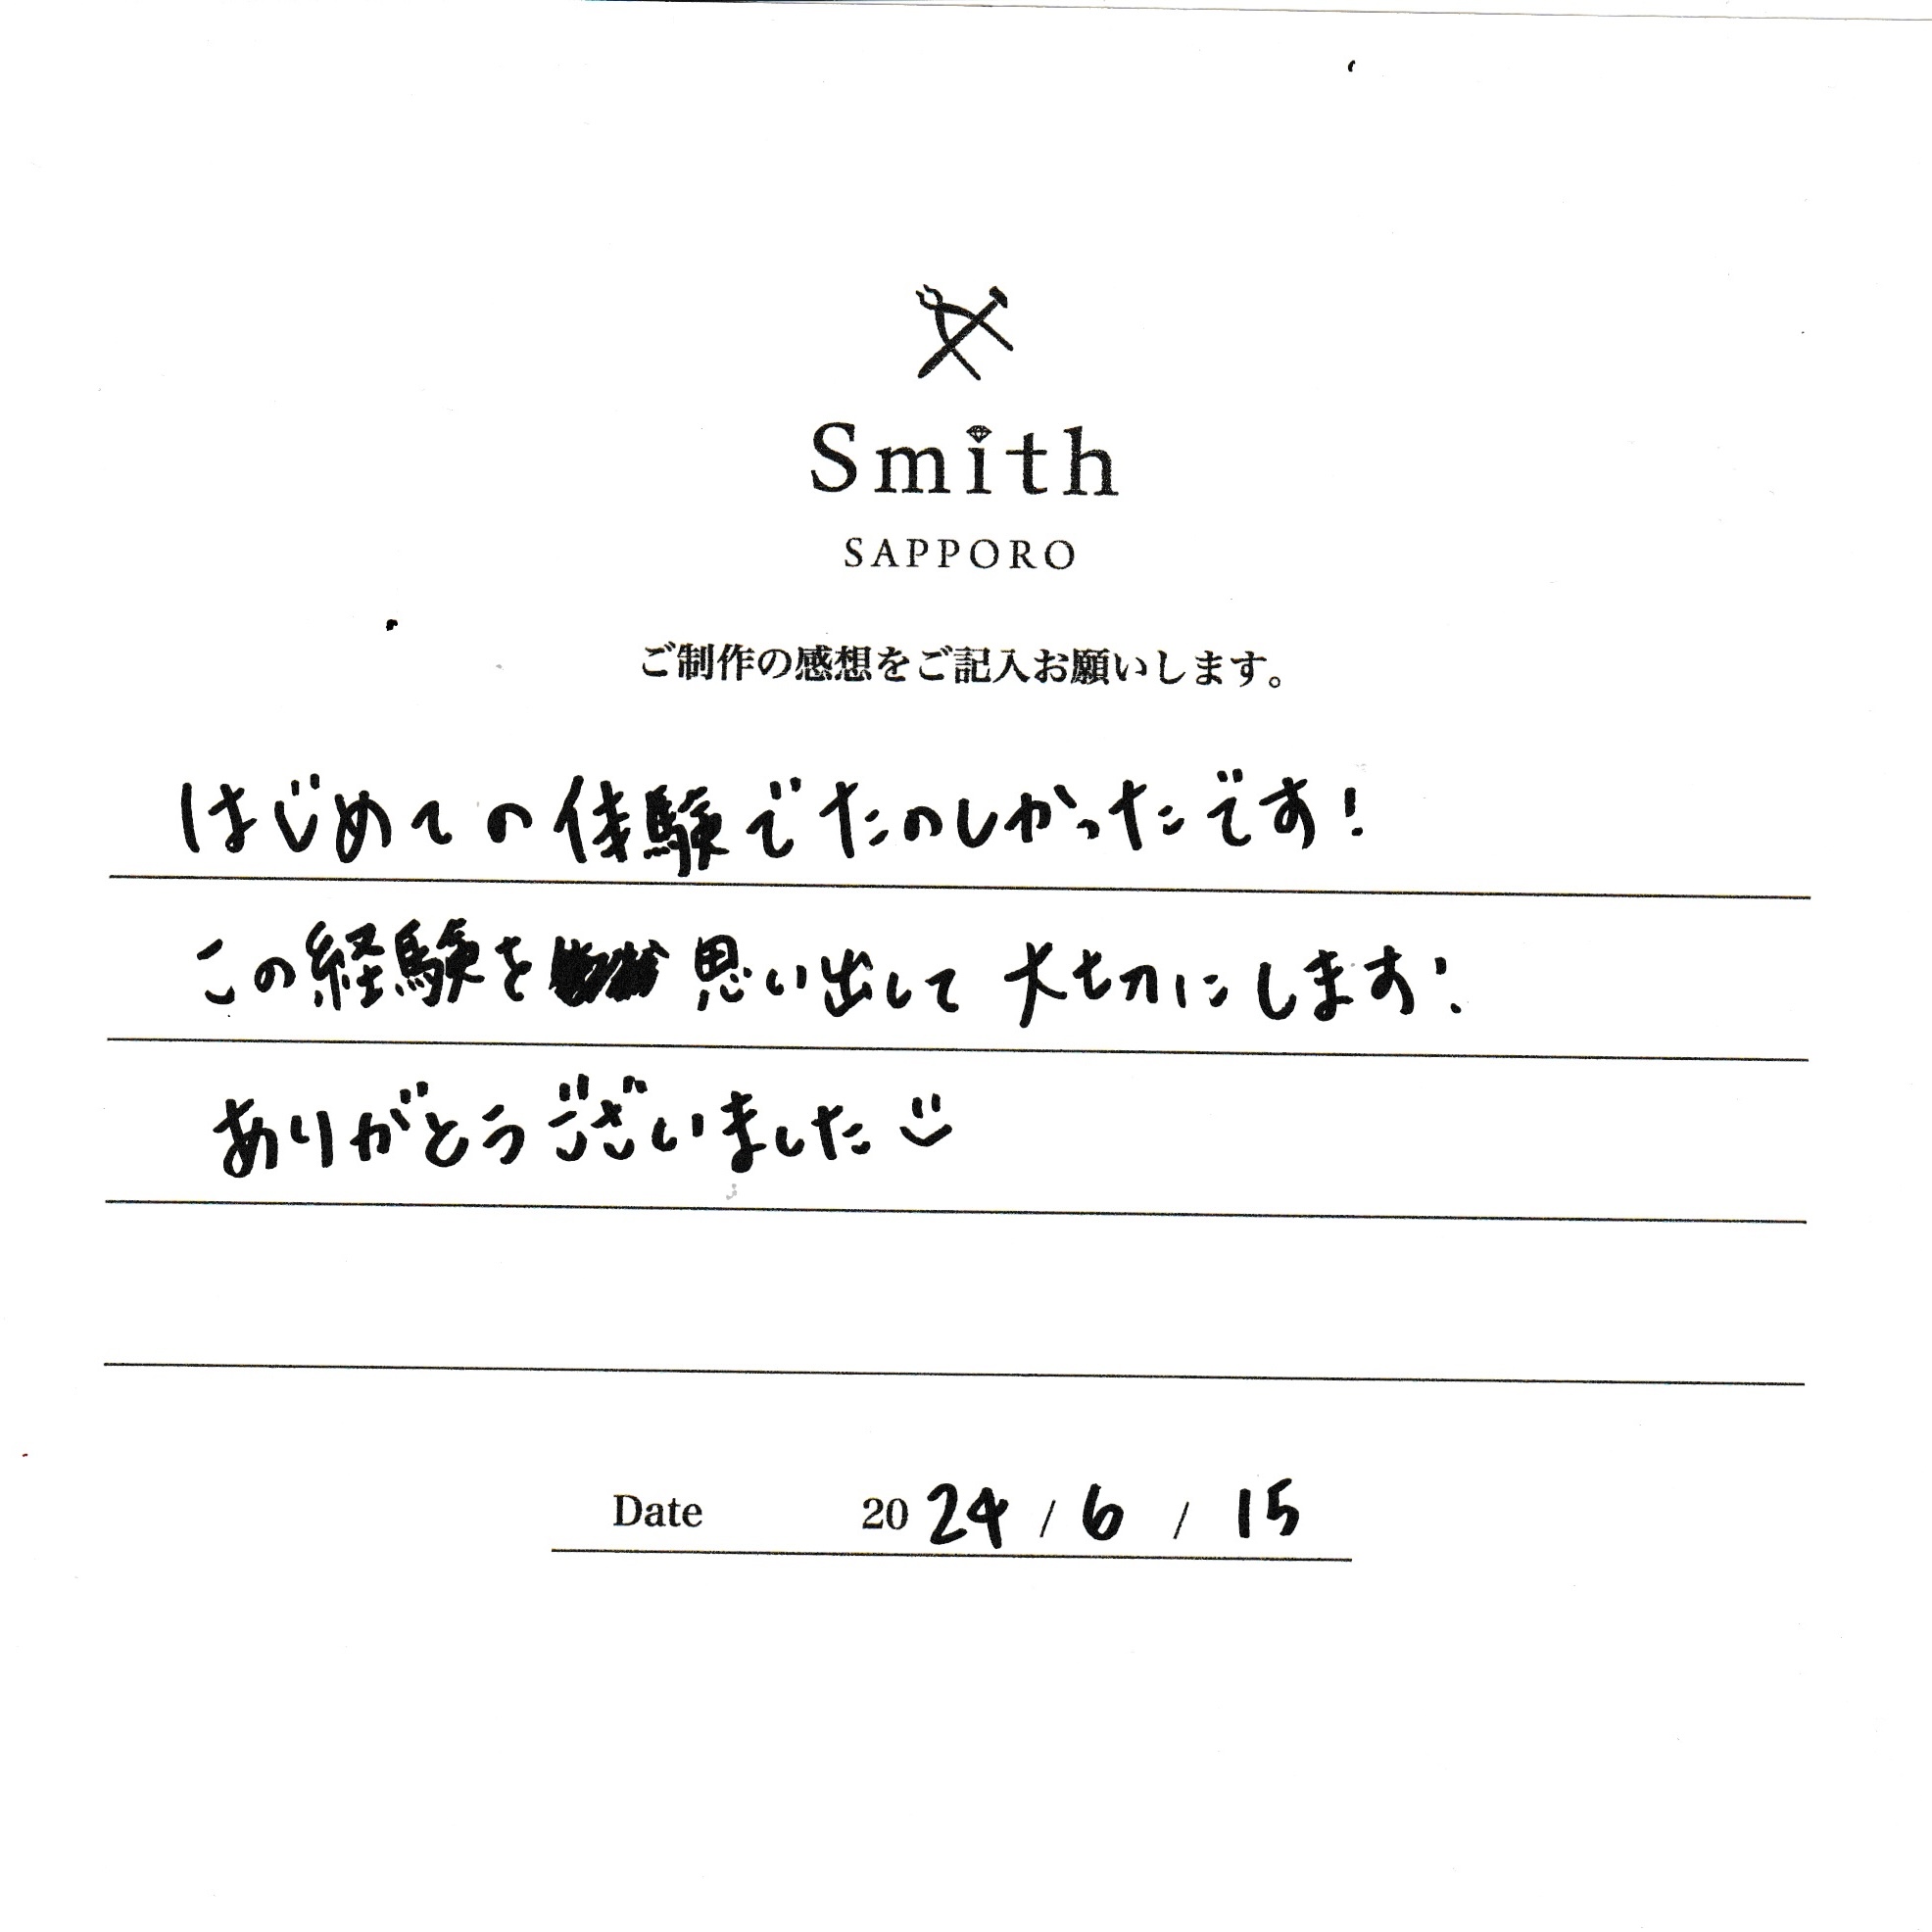 Smith
SAPPORO
ご制作の感想をご記入お願いします。
はじめての体験でたのしかったです!
この経験を思い出して大切にします!
ありがとうございました
Date 2024/6/15